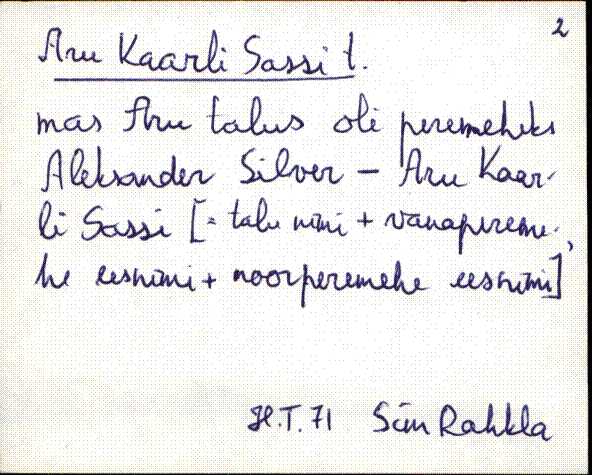 2
Aru Kaarli Sassi t.
mas Aru talus oli peremeheks
Aleksander Silver – Aru Kaar-
li Sassi [= talu nimi + vanapereme-
he eesnimi + noorperemehe eesnimi]
H.T. 71 Siin Rahkla